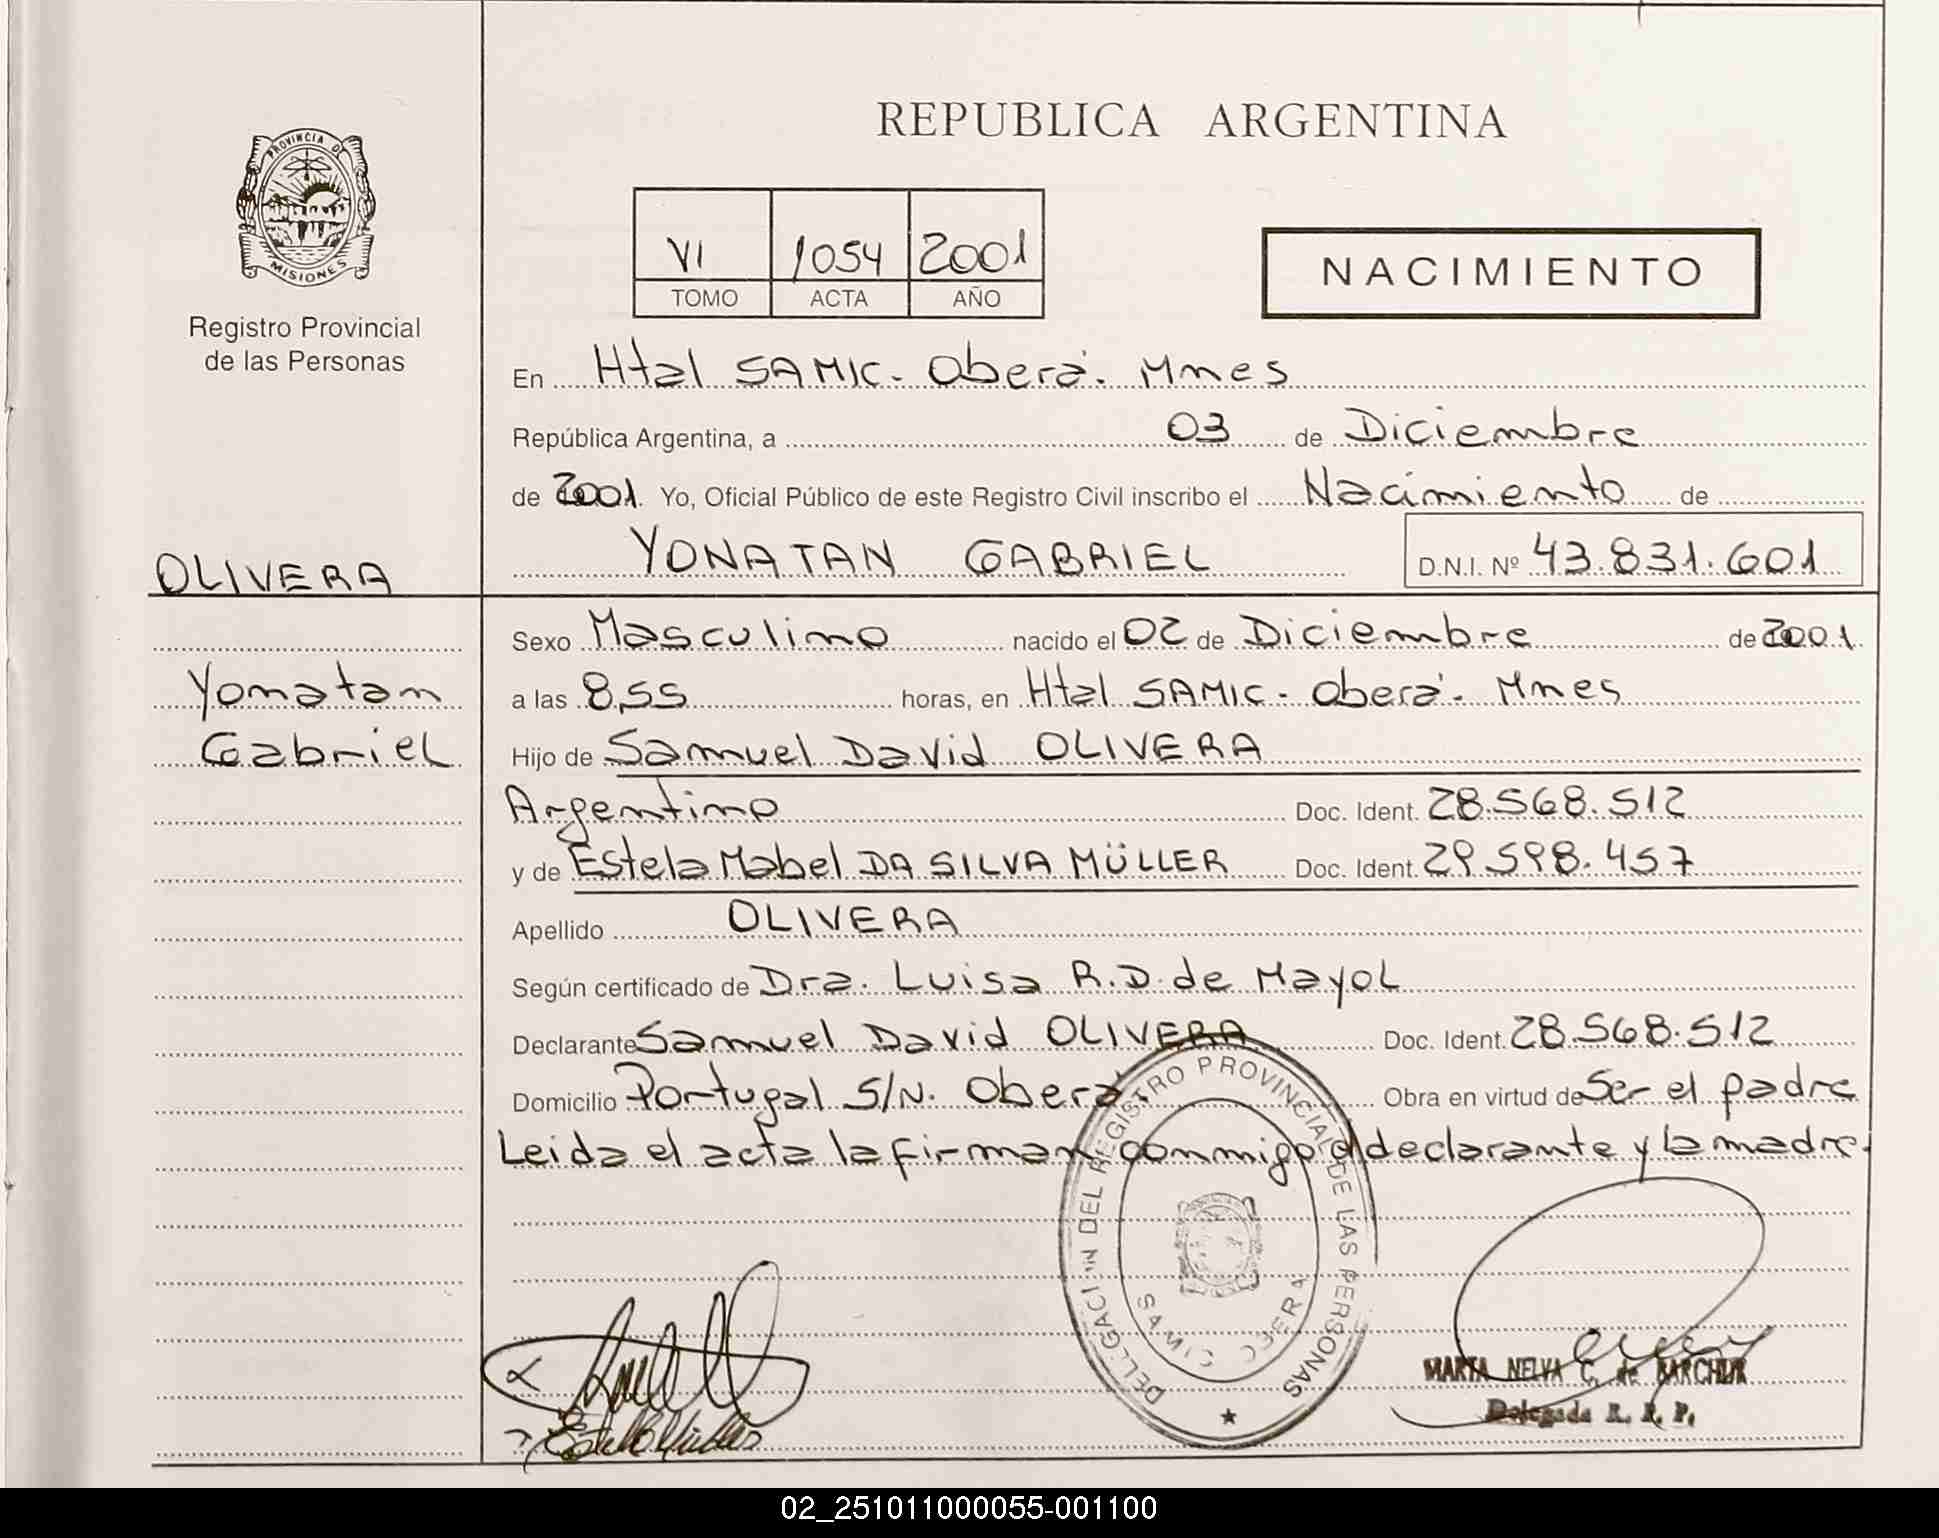 REPUBLICA ARGENTINA
PROVINCIA DE
MISIONES
Registro Provincial
de las Personas
VI 1054 2001
TOMO ACTA AÑO
NACIMIENTO
En Htal SAMIC. Oberá. Mnes
República Argentina, a 03 de Diciembre
de 2001. Yo, Oficial Público de este Registro Civil inscribo el Nacimiento de
YONATAN GABRIEL D.N.I. Nº 43.831.601
OLIVERA
Yonatan
Gabriel
Sexo Masculino nacido el 02 de Diciembre de 2001.
a las 8,55 horas, en Htal SAMIC - Oberá. Mnes
Hijo de Samuel David OLIVERA
Argentino Doc. Ident. 28.568.512
y de Estela Mabel DA SILVA MÜLLER Doc. Ident. 29.598.457
Apellido OLIVERA
Según certificado de Dra. Luisa R.D. de Mayol
Declarante Samuel David OLIVERA Doc. Ident. 28.568.512
Domicilio Portugal S/N. Oberá. Obra en virtud de Ser el padre
Leida el acta la firman conmigo el declarante y la madre.
DELEGACION DEL REGISTRO PROVINCIAL DE LAS PERSONAS
SAMIC OBERA
MARTA NELVA C. de BARCHUK
Delegada R. P. P.
02_251011000055-001100